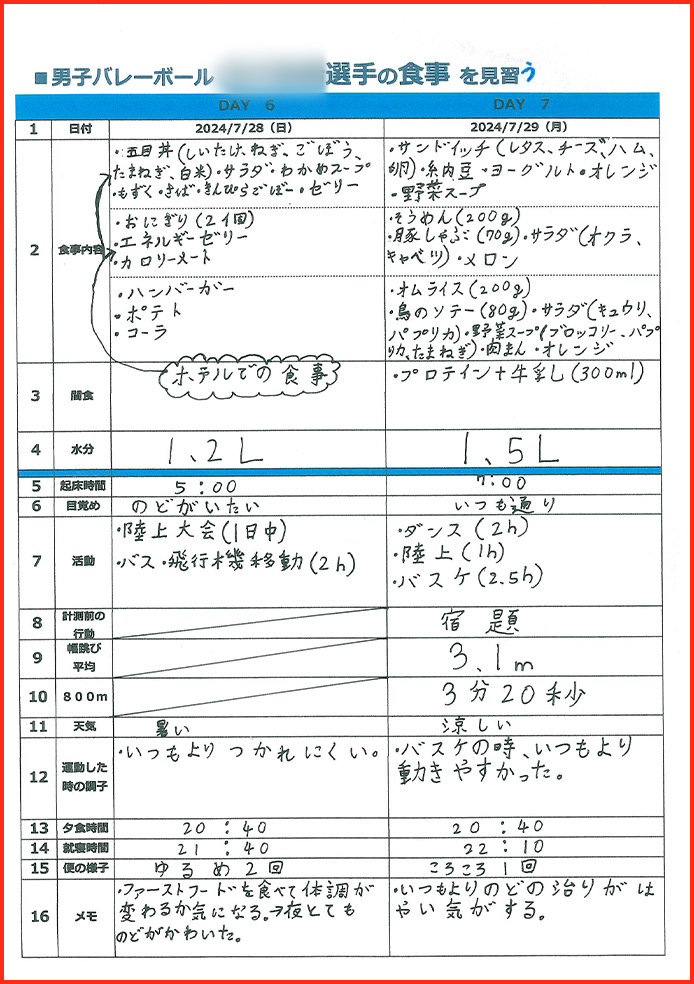 ■男子バレーボール 選手の食事 を見習う
DAY 6
DAY 7
1 日付 2024/7/28（日） 2024/7/29（月）
2 食事内容
・五目丼(しいたけ、ねぎ、ごぼう、
たまねぎ、白米)・サラダ・わかめスープ
・もずく・さば・きんぴらごぼー・ゼリー
・おにぎり(2個)
・エネルギーゼリー
・カロリーメート
・ハンバーガー
・ポテト
・コーラ
ホテルでの食事
・サンドイッチ(レタス、チーズ、ハム、
卵)・納豆・ヨーグルト・オレンジ
・野菜スープ
・そうめん(200g)
・豚しゃぶ(70g)・サラダ(オクラ、
キャベツ)・メロン
・オムライス(200g)
・鳥のソテー(80g)・サラダ(キュウリ、
パプリカ)・野菜スープ(ブロッコリー、パプ
リカ、たまねぎ)・肉まん・オレンジ
3 間食 ・プロテイン+牛乳(300ml)
4 水分 1.2L 1.5L
5 起床時間 5:00 7:00
6 目覚め のどがいたい いつも通り
7 活動
・陸上大会(1日中)
・バス・飛行機移動(2h)
・ダンス(2h)
・陸上(1h)
・バスケ(2.5h)
8 計測前の
行動
宿題
9 幅跳び
平均
3.1m
10 800m 3分20秒
11 天気 暑い 涼しい
12 運動した
時の調子
・いつもよりつかれにくい。
・バスケの時、いつもより
動きやすかった。
13 夕食時間 20:40 20:40
14 就寝時間 21:40 22:10
15 便の様子 ゆるめ2回 ころころ1回
16 メモ
・ファーストフードを食べて体調が
変わるか気になる。→夜とても
のどがかわいた。
・いつもよりのどの治りがは
やい気がする。